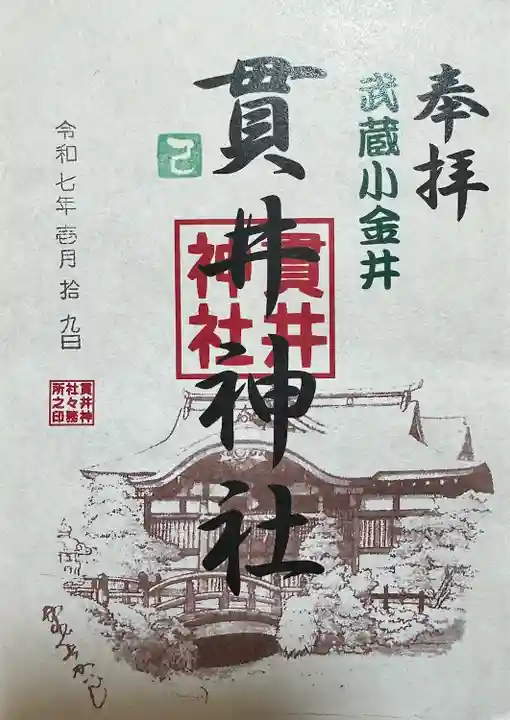 奉拝
武蔵小金井
貫井神社
貫井
神社
己
令和七年壱月拾九日
貫井神
社々務
所之印